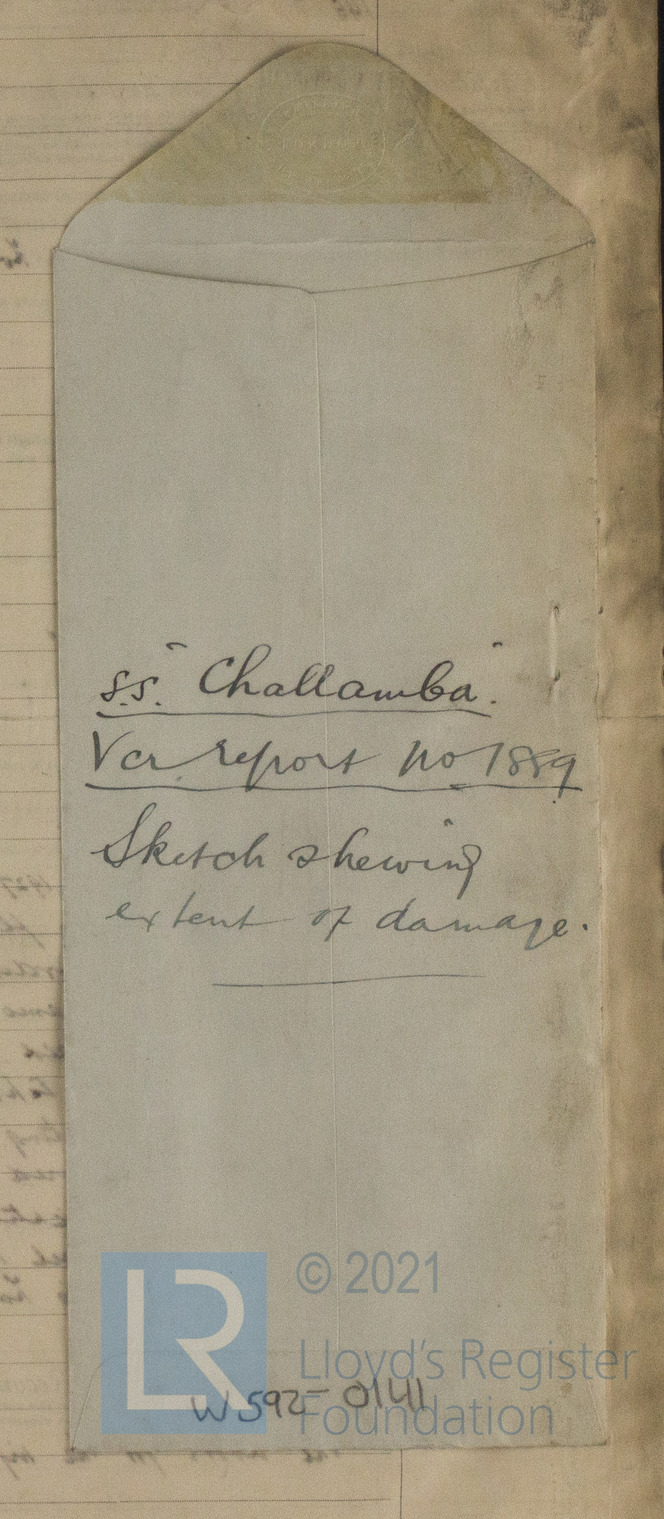 S.S. "Challamba".
Vcr report no 1889
Sketch shewing
extent of damage.
LR
© 2021
Lloyd's Register
Foundation
W592-0141